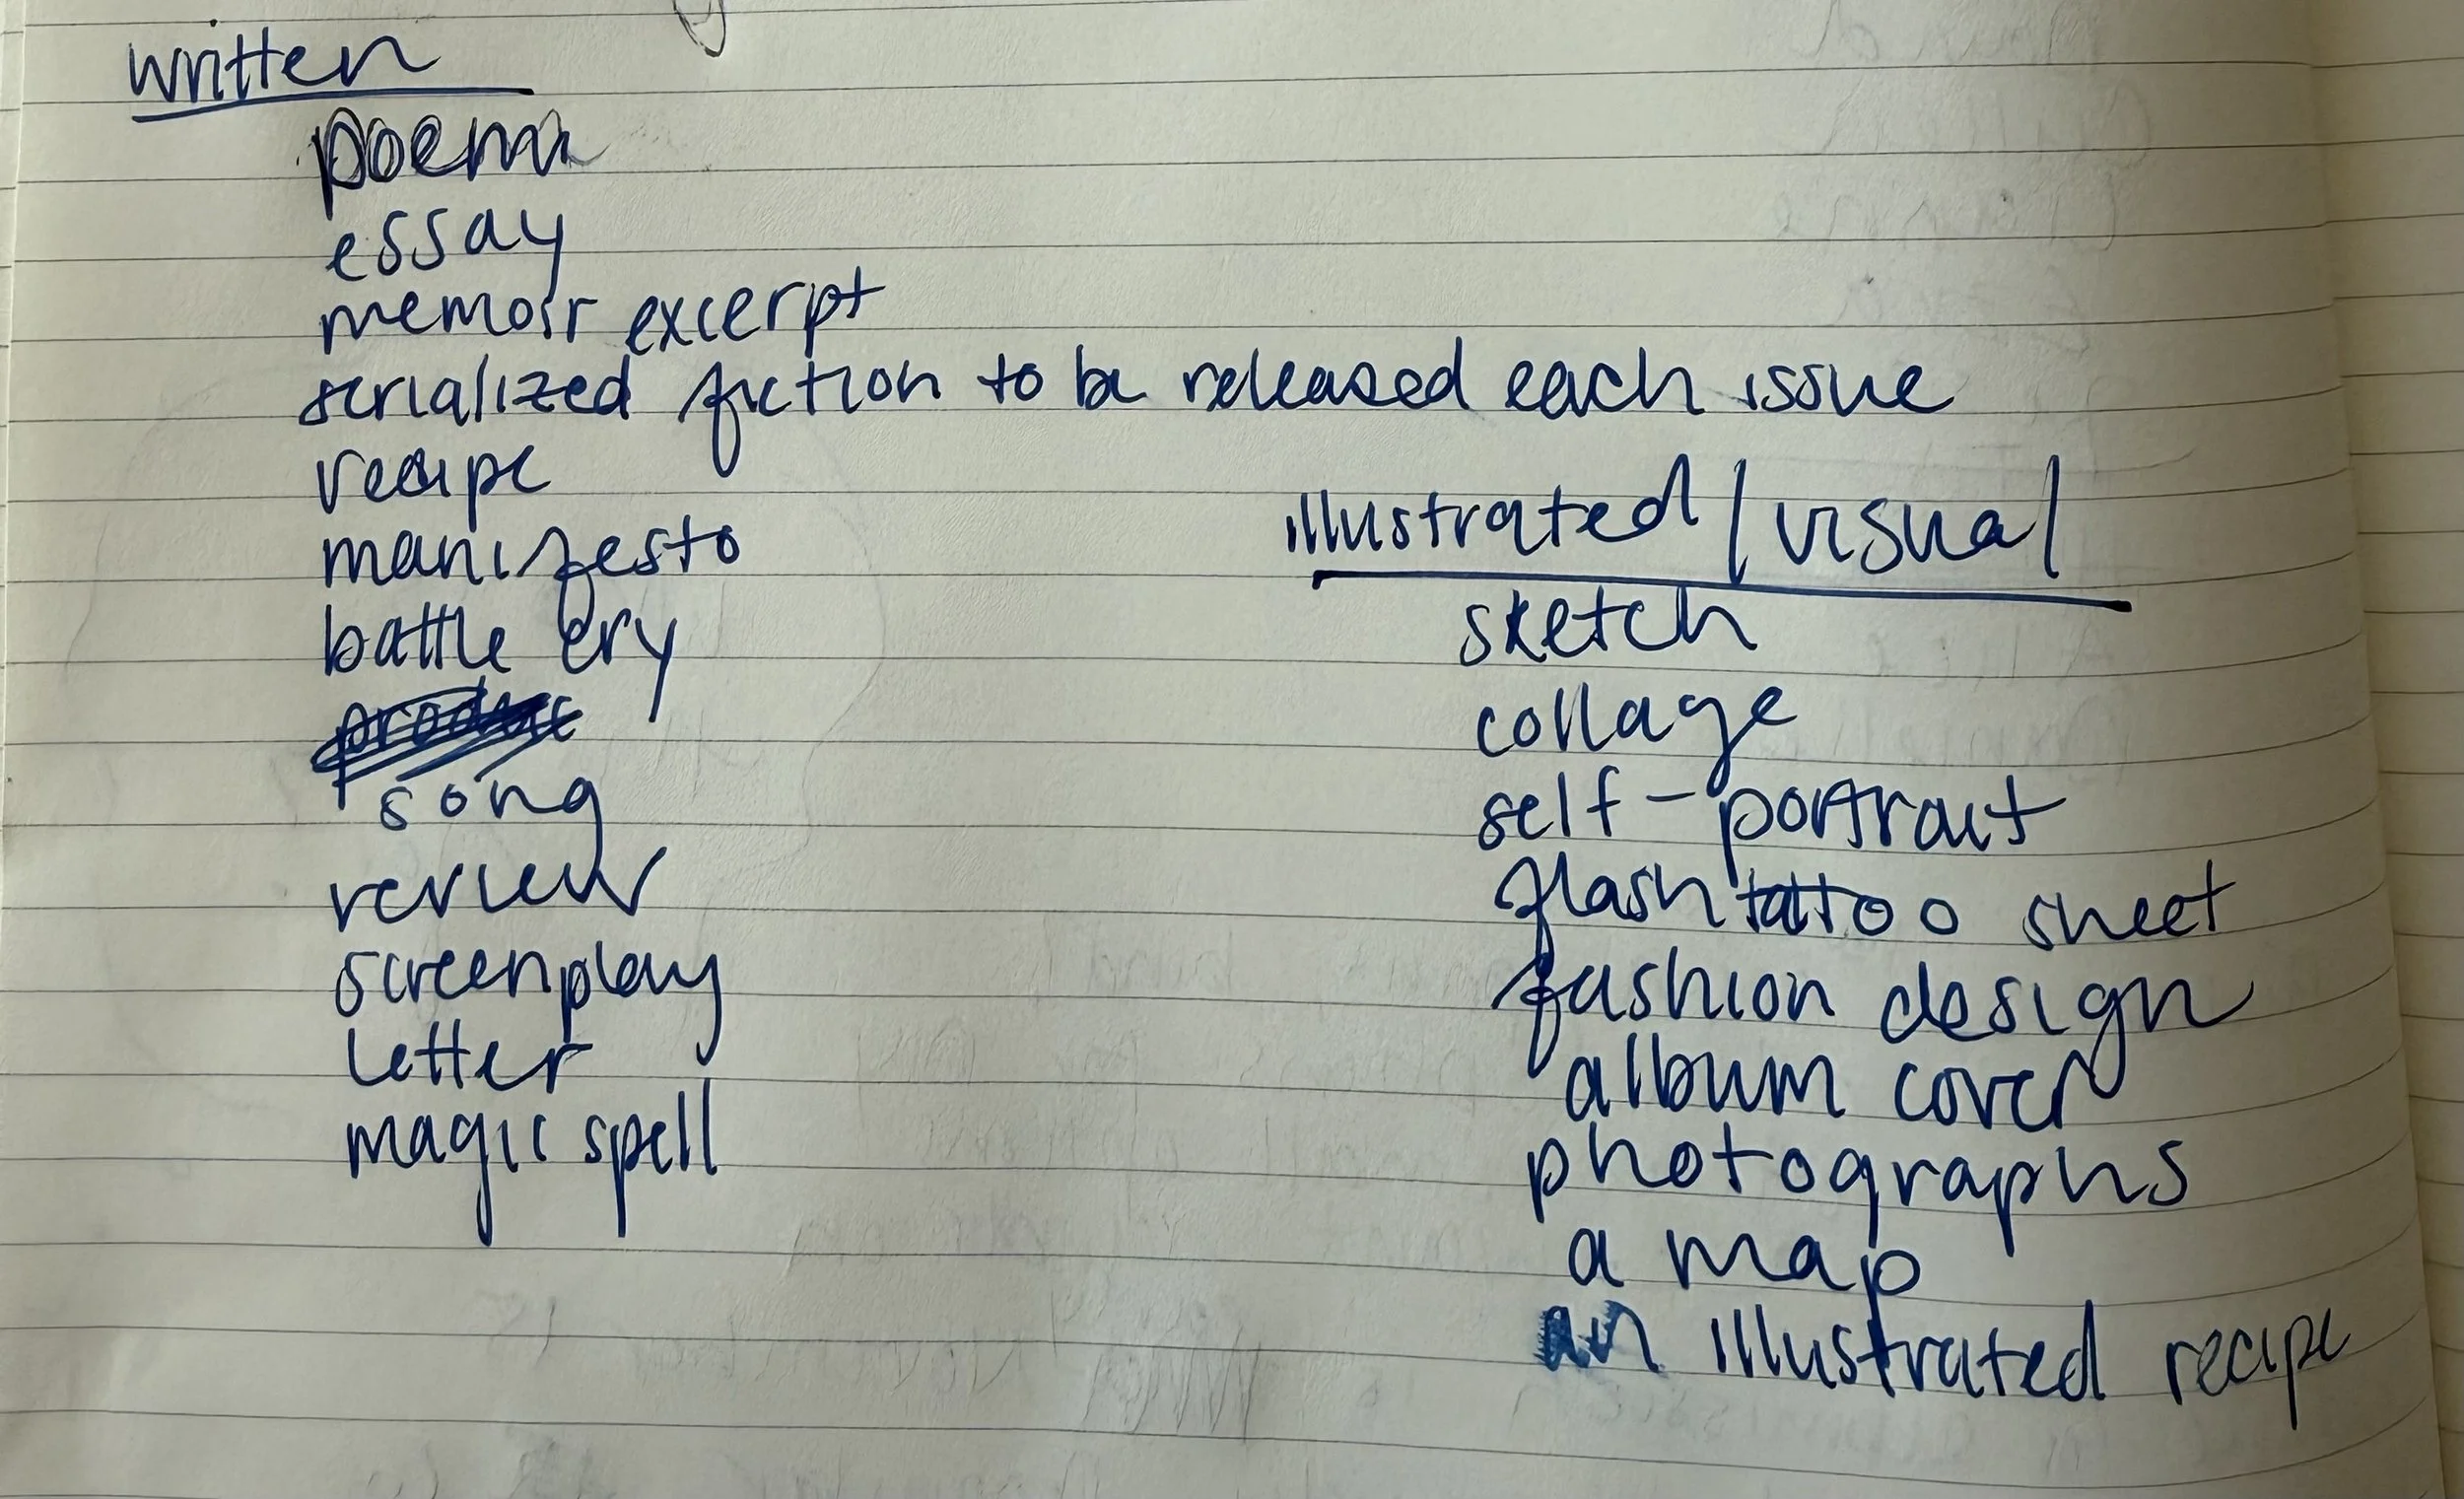 written
poem
essay
memoir excerpt
serialized fiction to be released each issue
recipe
manifesto
battle cry
song
review
screenplay
letter
magic spell
illustrated/visual
sketch
collage
self-portrait
flash tattoo sheet
fashion design
album cover
photographs
a map
an illustrated recipe